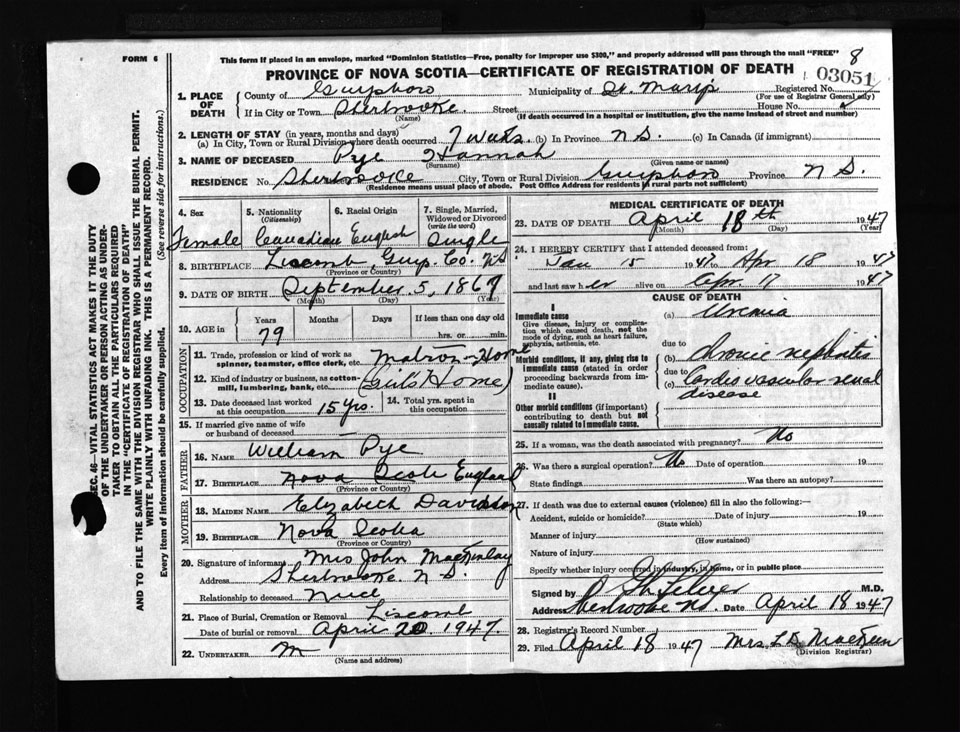 FORM 6
This form if placed in an envelope, marked "Dominion Statistics—Free, penalty for improper use $300," and properly addressed will pass through the mail "FREE"
8
PROVINCE OF NOVA SCOTIA—CERTIFICATE OF REGISTRATION OF DEATH
03051
1. PLACE OF DEATH
County of Guysboro Municipality of St. Marys Registered No.
(For use of Registrar General only)
If in City or Town Sherbrooke Street House No.
(Name) (If death occurred in a hospital or institution, give the name instead of street and number)
2. LENGTH OF STAY (in years, months and days)
(a) In City, Town or Rural Division where death occurred 7 wks. (b) In Province N S. (c) In Canada (if immigrant)
3. NAME OF DECEASED Pye Hannah
(Surname) (Given name or names)
RESIDENCE No. Sherbrooke City, Town or Rural Division Guysboro Province N S.
(Residence means usual place of abode. Post Office Address for residents in rural parts not sufficient)
4. Sex
Female
5. Nationality
(Citizenship)
Canadian
6. Racial Origin
English
7. Single, Married, Widowed or Divorced
(write the word)
Single
8. BIRTHPLACE Liscomb, Guys. Co. NS
(Province or Country)
9. DATE OF BIRTH September 5, 1867
(Month) (Day) (Year)
10. AGE in
Years Months Days If less than one day old
79 hrs. or min.
OCCUPATION
11. Trade, profession or kind of work as spinner, teamster, office clerk, etc. Matron-Home
12. Kind of industry or business, as cotton-mill, lumbering, bank, etc. (Girls' Home)
13. Date deceased last worked at this occupation 15 yrs.
14. Total yrs. spent in this occupation
15. If married give name of wife or husband of deceased —
FATHER
16. NAME William Pye
17. BIRTHPLACE Nova Scotia England
(Province or Country)
MOTHER
18. MAIDEN NAME Elizabeth Davidson
19. BIRTHPLACE Nova Scotia
(Province or Country)
20. Signature of informant Mrs John MacKinlay
Address Sherbrooke. N S.
Relationship to deceased Niece
21. Place of Burial, Cremation or Removal Liscomb
Date of burial or removal April 20 1947.
22. UNDERTAKER
(Name and address)
MEDICAL CERTIFICATE OF DEATH
23. DATE OF DEATH April 18th 1947
(Month) (Day) (Year)
24. I HEREBY CERTIFY that I attended deceased from:
Jan 15 1947 to Apr 18 1947
and last saw her alive on Apr. 17 1947
CAUSE OF DEATH
I
Immediate cause
Give disease, injury or complication which caused death, not the mode of dying, such as heart failure, asphyxia, asthenia, etc.
(a) Uremia
due to
Morbid conditions, if any, giving rise to immediate cause (stated in order proceeding backwards from immediate cause).
(b) Chronic nephritis
due to
(c) Cardio vascular renal disease
II
Other morbid conditions (if important) contributing to death but not causally related to immediate cause.
25. If a woman, was the death associated with pregnancy? No
26. Was there a surgical operation? No Date of operation 19
State findings Was there an autopsy?
27. If death was due to external causes (violence) fill in also the following:—
Accident, suicide or homicide? Date of injury 19
(State which)
Manner of injury
(How sustained)
Nature of injury
Specify whether injury occurred in industry, in home, or in public place
Signed by M.D.
Address Sherbrooke NS. Date April 18 1947
28. Registrar's Record Number 1
29. Filed April 18 1947 Mrs. L.D. MacKeen
(Division Registrar)
SEC. 46—VITAL STATISTICS ACT MAKES IT THE DUTY
OF THE UNDERTAKER OR PERSON ACTING AS UNDERTAKER TO OBTAIN ALL THE PARTICULARS REQUIRED
IN THE "CERTIFICATE OF REGISTRATION OF DEATH"
AND TO FILE THE SAME WITH THE DIVISION REGISTRAR WHO SHALL ISSUE THE BURIAL PERMIT.
WRITE PLAINLY WITH UNFADING INK. THIS IS A PERMANENT RECORD.
Every item of information should be carefully supplied. (See reverse side for instructions.)